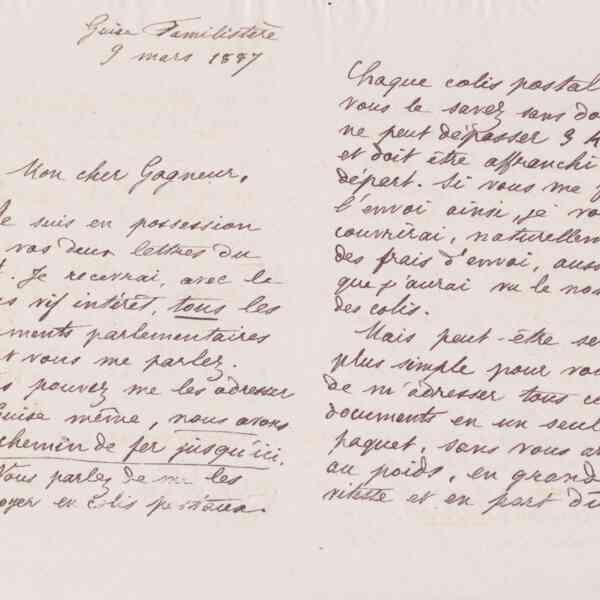 Guise Familistère
9 mars 1887
Mon cher Gagneur,
Je suis en possession
vos deux lettres du
Je recevrai, avec le
vif intérêt, tous les
parlementaires
vous me parlez.
pouvez me les adresser
Guise même, nous avons
chemin de fer jusqu'ici.
Vous parlez de me les
en colis postaux.
Chaque colis postal
vous le savez sans
ne peut dépasser 3
et doit être affranchi
départ. Si vous me
l'envoi ainsi, je
couvrirai,
des frais d'envoi,
que j'aurai vu le
des colis.
Mais peut-être
plus simple pour
de m'adresser tous
documents en un seul
paquet, sans vous
au poids, en
vitesse et en port